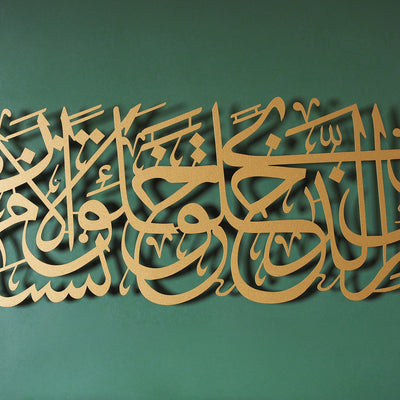 الذي خلق خلق الإنسان